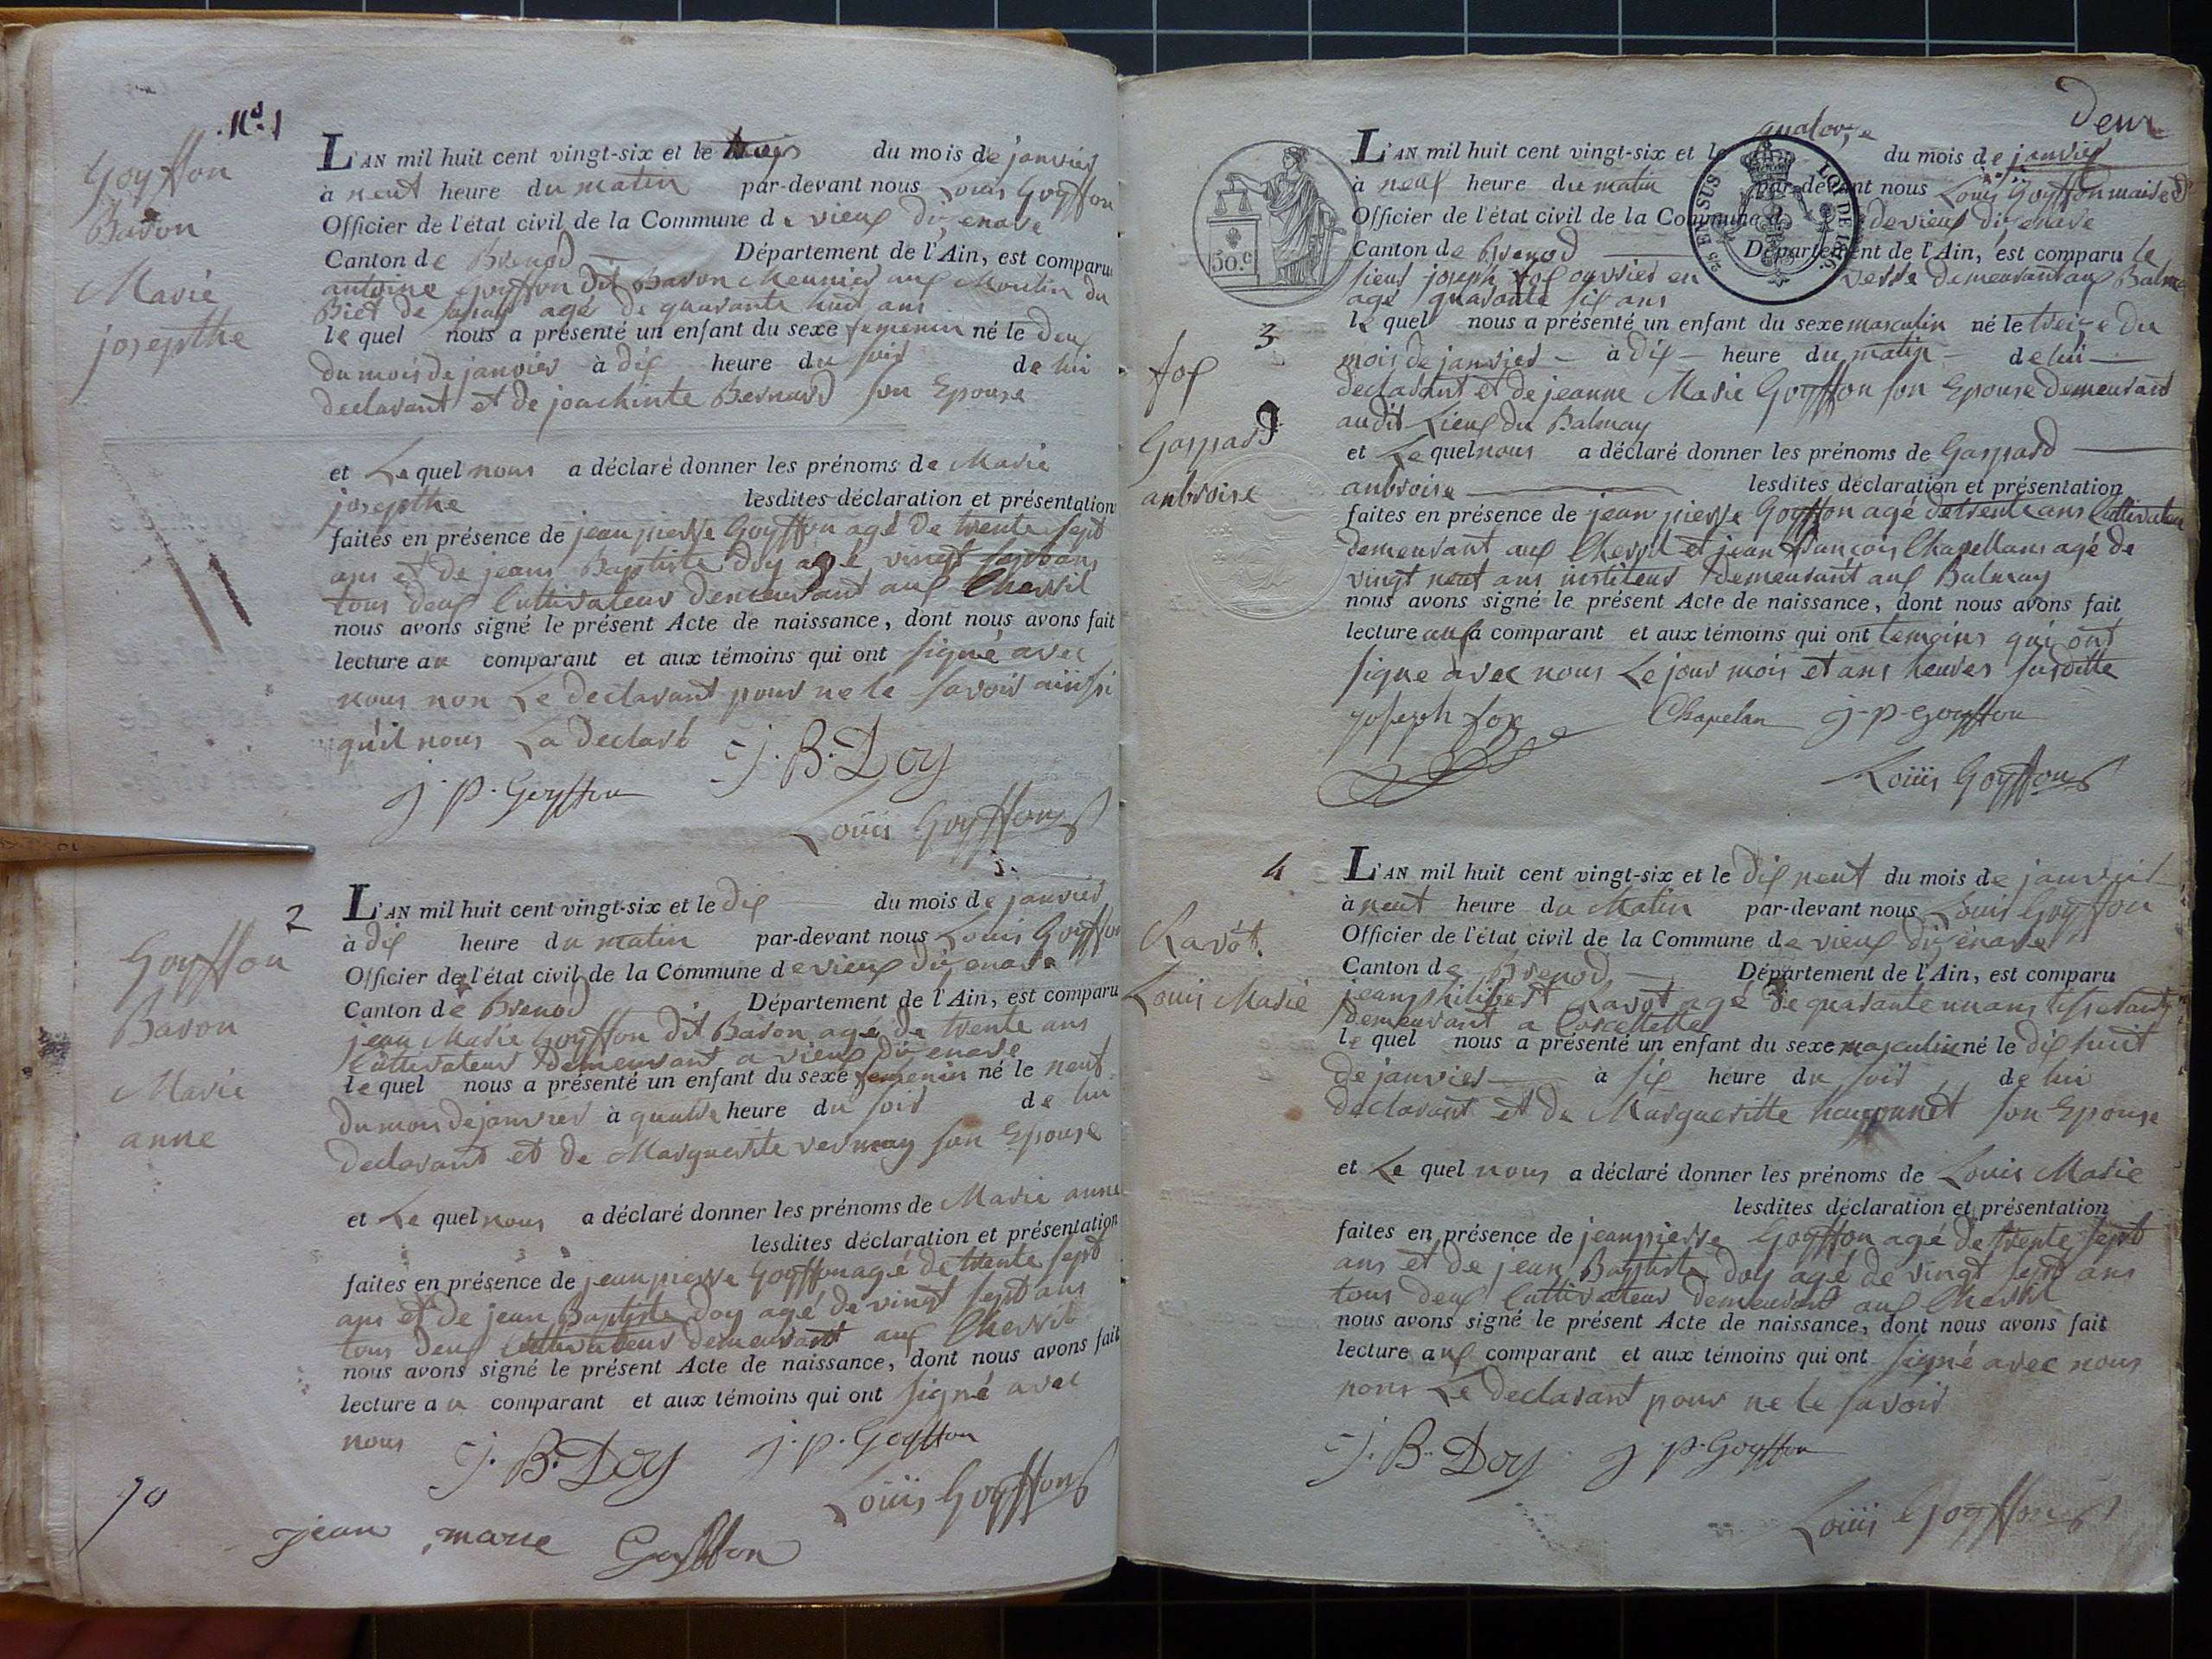 N.o 1
Goyffon
Baron
Marie
josepthe
L'AN mil huit cent vingt-six et le trois du mois de janvier
à neuf heure du matin par-devant nous Louis Goyffon
Officier de l'état civil de la Commune de vieux dizenave
Canton de Brenod Département de l'Ain, est comparu
antoine Goyffon dit Baron Meunier aux Moulin du
Biet de agé de quarante huit ans
le quel nous a présenté un enfant du sexe femenin né le deux
du mois de janvier à dix heure du soir de lui
declarant et de joachinte Bernard son Epouse
et Le quel nous a déclaré donner les prénoms de Marie
josepthe lesdites déclaration et présentation
faites en présence de jean pierre Goyffon agé de trente sept
ans et de jean Baptiste Doy agé vingt sept ans
tous deux Cultivateur demeurant aux Chevril
nous avons signé le présent Acte de naissance, dont nous avons fait
lecture au comparant et aux témoins qui ont signé avec
nous non Le declarant pour ne le savoir ainsi
qu'il nous La declaré J. B. Doy
j. p. Goyffon
Louis Goyffon
2
Goyffon
Baron
Marie
anne
L'AN mil huit cent vingt-six et le dix du mois de janvier
à dix heure du matin par-devant nous Louis Goyffon
Officier de l'état civil de la Commune de vieux dizenave
Canton de Brenod Département de l'Ain, est comparu
jean Marie Goyffon dit Baron agé de trente ans
Cultivateur demeurant a vieux dizenave
le quel nous a présenté un enfant du sexe femenin né le neuf
du mois de janvier à quatre heure du soir de lui
declarant et de Marguerite vermay son Epouse
et Le quel nous a déclaré donner les prénoms de Marie anne
lesdites déclaration et présentation
faites en présence de jean pierre Goyffon agé de trente sept
ans et de jean Baptiste doy agé de vingt sept ans
tous deux Cultivateur demeurant aux Chevril
nous avons signé le présent Acte de naissance, dont nous avons fait
lecture au comparant et aux témoins qui ont signé avec
nous J. B. Doy j. p. Goyffon
Louis Goyffon
jean marie Goyffon
deux
quatorze
L'AN mil huit cent vingt-six et le du mois de janvier
à neuf heure du matin par-devant nous Louis Goyffon maire
Officier de l'état civil de la Commune de vieux dizenave
Canton de Brenod Département de l'Ain, est comparu le
sieur joseph fox ouvrier en verre demeurant aux Balmay
agé quarante six ans
50.c
EN SUS LOI DE 1816
3
fox
Gaspard
anbroise
le quel nous a présenté un enfant du sexe masculin né le treize du
mois de janvier à dix heure du matin de lui
declarant et de jeanne Marie Goyffon son Epouse demeurant
audit Lieux du Balmay
et Le quel nous a déclaré donner les prénoms de Gaspard
anbroise lesdites déclaration et présentation
faites en présence de jean pierre Goyffon agé de trente ans Cultivateur
demeurant aux Chevril et jean françois Chapellans agé de
vingt neuf ans institeur demeurant aux Balmay
nous avons signé le présent Acte de naissance, dont nous avons fait
lecture aux comparant et aux témoins qui ont temoins qui ont
signe avec nous Le jour mois et ans heures susditte
joseph fox Chapelan j-p-Goyffon
Louis Goyffon
4
Ravot.
Louis Marie
L'AN mil huit cent vingt-six et le dix neuf du mois de janvier
à neuf heure du Matin par-devant nous Louis Goyffon
Officier de l'état civil de la Commune de vieux dizenave
Canton de Brenod Département de l'Ain, est comparu
jean philibert Ravot agé de quarante un ans tisserant
demeurant a Corcellette
le quel nous a présenté un enfant du sexe masculin né le dix huit
de janvier à six heure du soir de lui
declarant et de Margueritte son Epouse
et Le quel nous a déclaré donner les prénoms de Louis Marie
lesdites déclaration et présentation
faites en présence de jean pierre Goyffon agé de trente sept
ans et de jean Baptiste doy agé de vingt sept ans
tous deux Cultivateur demeurant aux Chevril
nous avons signé le présent Acte de naissance, dont nous avons fait
lecture aux comparant et aux témoins qui ont signé avec nous
nons Le declarant pour ne le savoir
J. B. Doy j p. Goyffon
Louis Goyffon